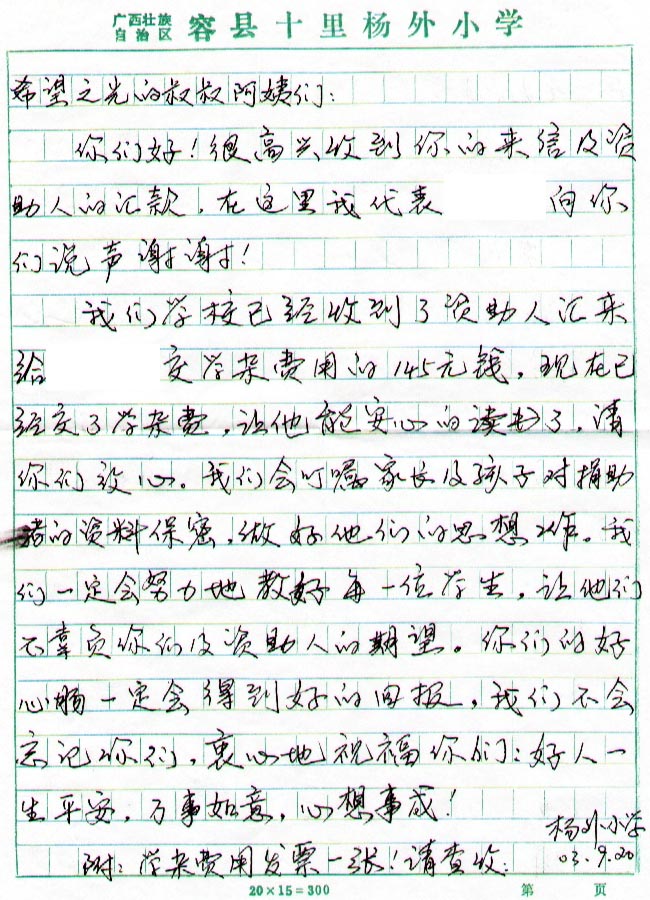 广西壮族
自治区 容县十里杨外小学
希望之光的叔叔阿姨们:
你们好!很高兴收到你的来信及资
助人的汇款,在这里我代表 向你
们说声谢谢!
我们学校已经收到了资助人汇来
给 交学杂费用的145元钱,现在已
经交了学杂费,让他能安心的读书了,请
你们放心。我们会叮嘱家长及孩子对捐助
者的资料保密,做好他们的思想工作。我
们一定会努力地教好每一位学生,让他们
不辜负你们及资助人的期望。你们的好
心肠一定会得到好的回报,我们不会
忘记你们,衷心地祝福你们:好人一
生平安,万事如意,心想事成!
杨外小学
附:学杂费用发票一张!请查收:
03.9.20
20×15=300 第 页